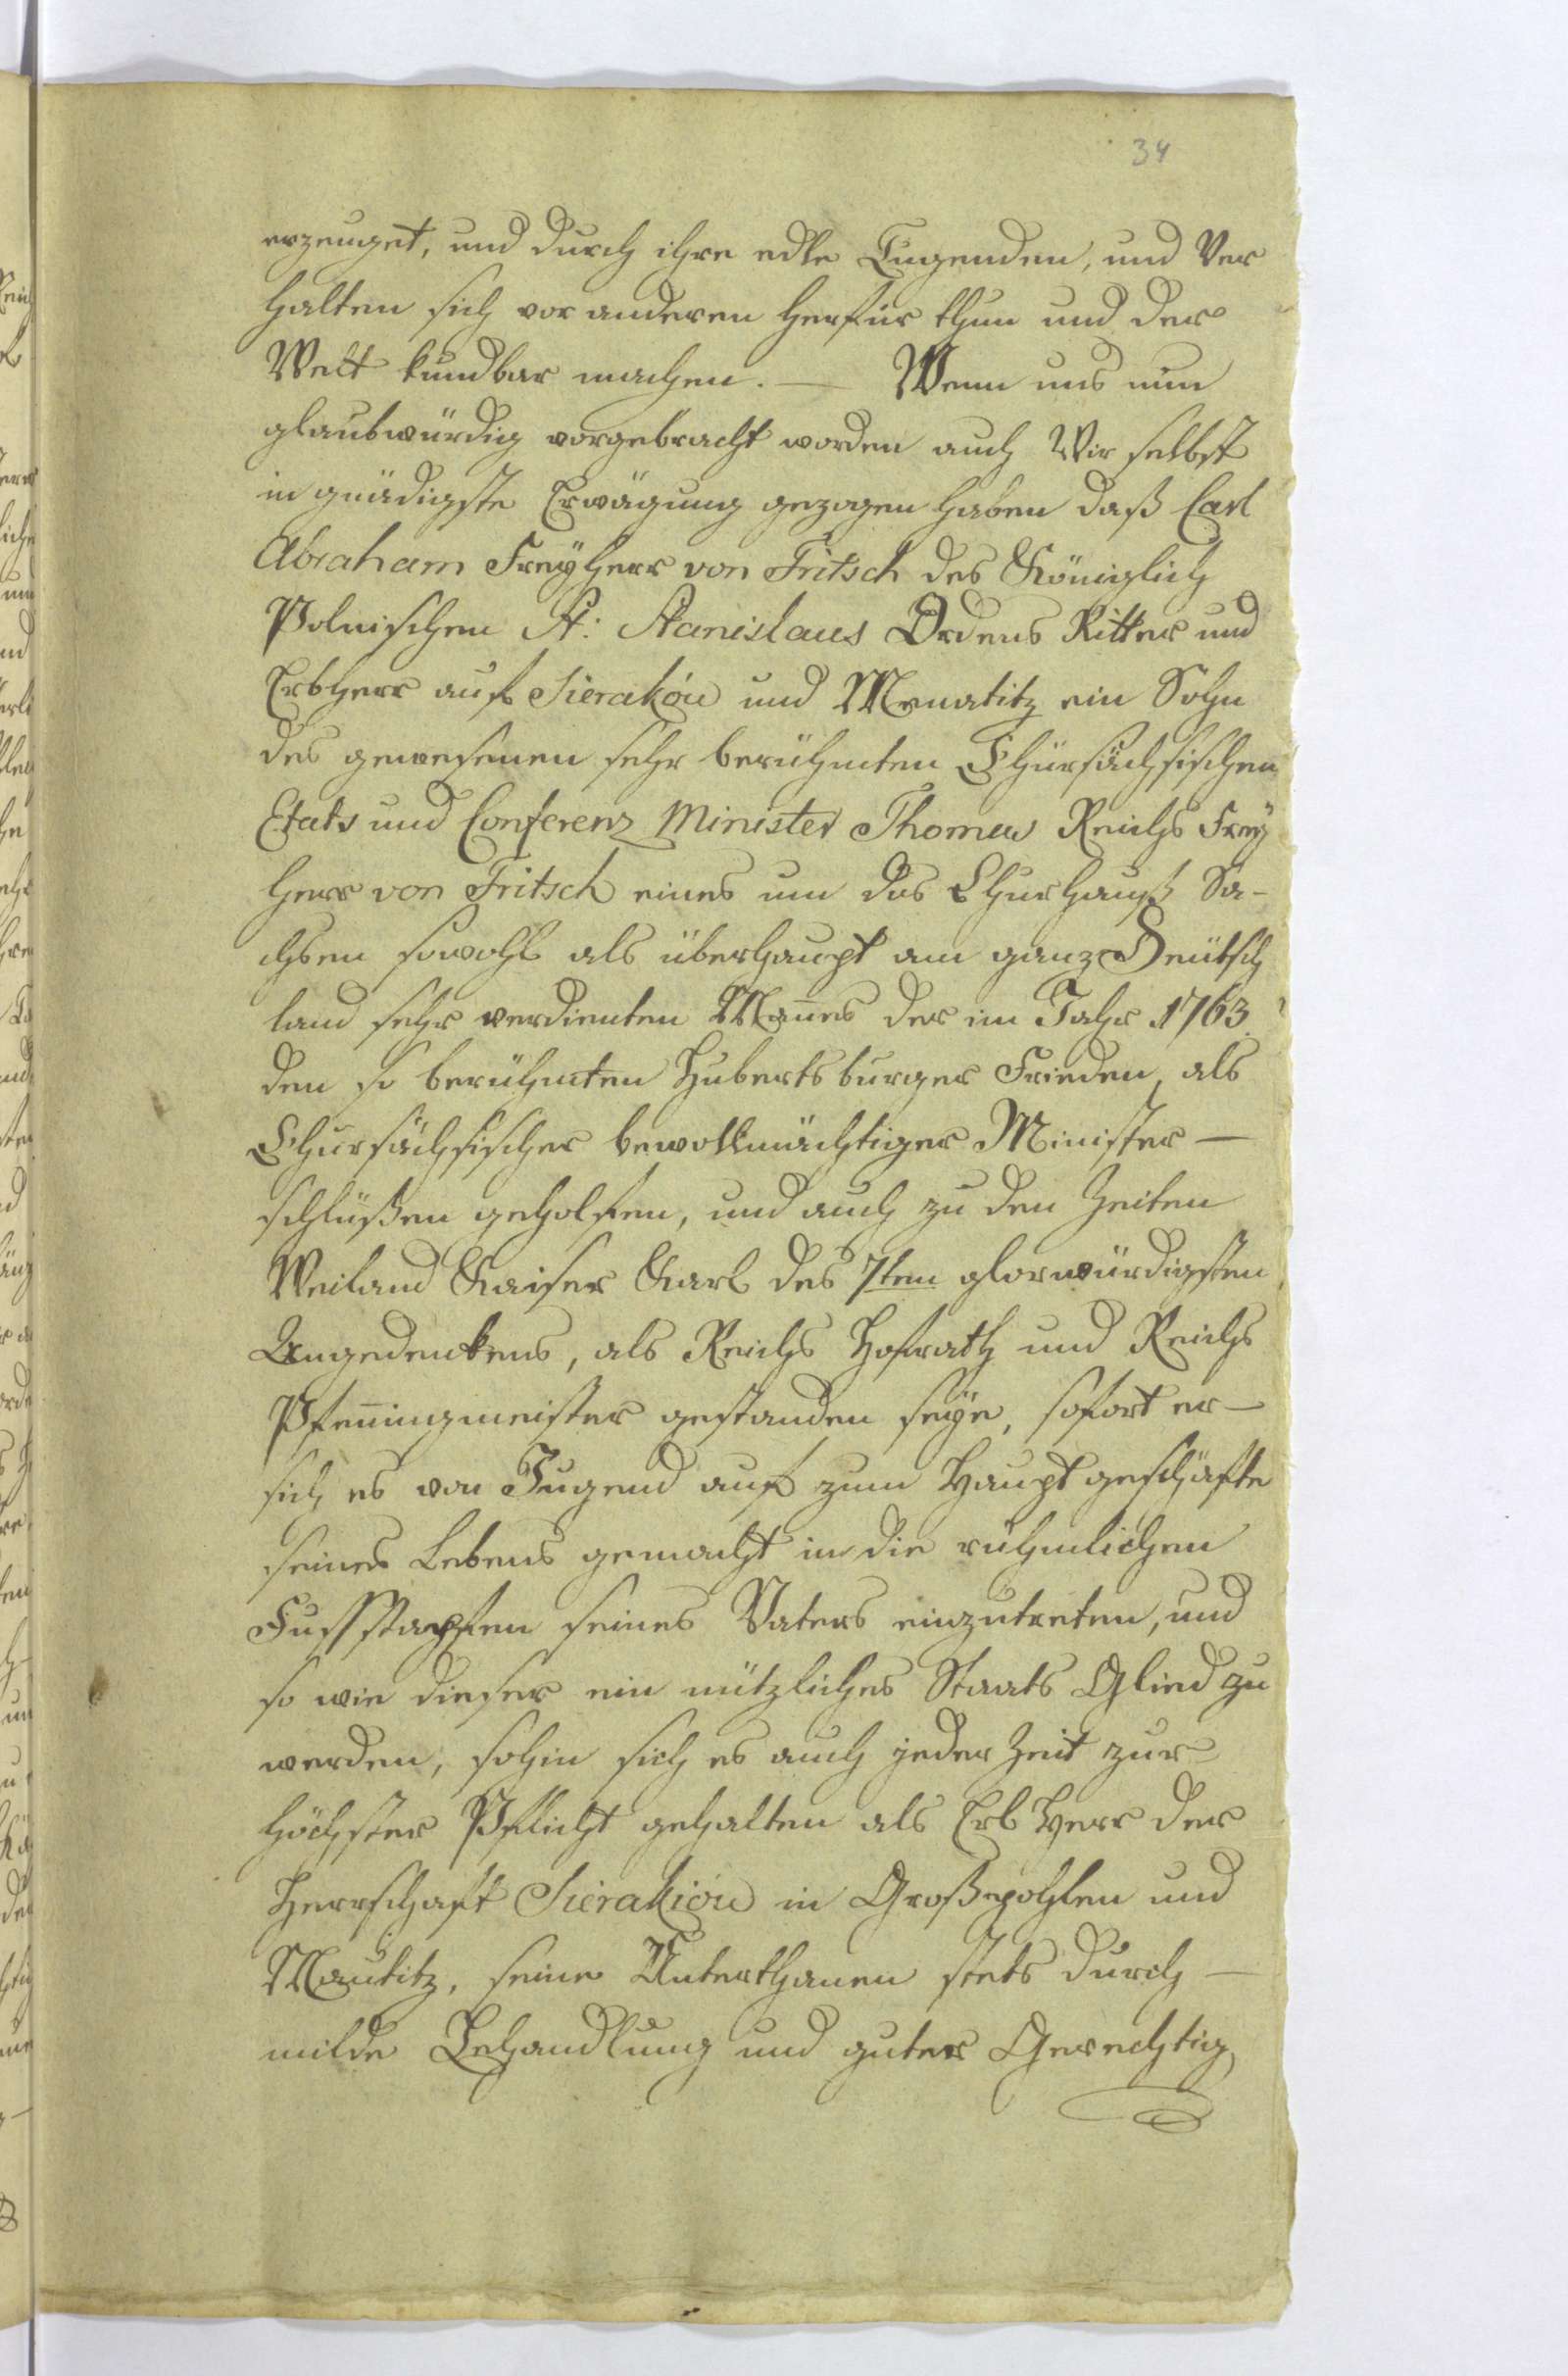 34
erzeuget, und durch ihre edle Tugenden, und Ver
halten sich vor anderen herfür thun und der
Welt kundbar machen. — Wenn uns nun
glaubwürdig vorgebracht worden auch Wir selbst
in gnädigste Erwägung gezogen haben daß Carl
Abraham Freyherr von Fritsch des Königlich
Polnischen St: Stanislaus Ordens Ritter und
Erbherr auf Sierakóu und Menatitz ein Sohn
des gewesenen sehr berühmten Chursächsischen
Etats und Conferenz Minister Thomas Reichs Frey
herr von Fritsch eines um das Churhauß Sa-
chsen sowohl als überhaupt um ganz Deutsch
land sehr verdienten Mañes der im Jahr 1763
den so berühmten Hubertsburger Frieden, als
Chursächsischer bewollmächtiger Minister —
schlüßen geholfen, und auch zu den Zeiten
Weiland Kaiser Karl des 7ten glorwürdigsten
Angedenkens, als Reichs Hofrath und Reichs
Pfeñingmeister gestanden seÿe, sofort er —
sich es von Jugend auf zum Hauptgeschäfte
seines Lebens gemacht in die rühmlichen
Fussstapfen seines Vaters einzutreten, und
so wie dieser ein nützliches Staats Glied zu
werden, sohin sich es auch jeder Zeit zur
höchster Pflicht gehalten als Erb Herr der
Herrschaft Sierakióu in Großpohlen und
Mautitz, seine Unterthanen stets durch —
milde Behandlung und guter Gerechtig